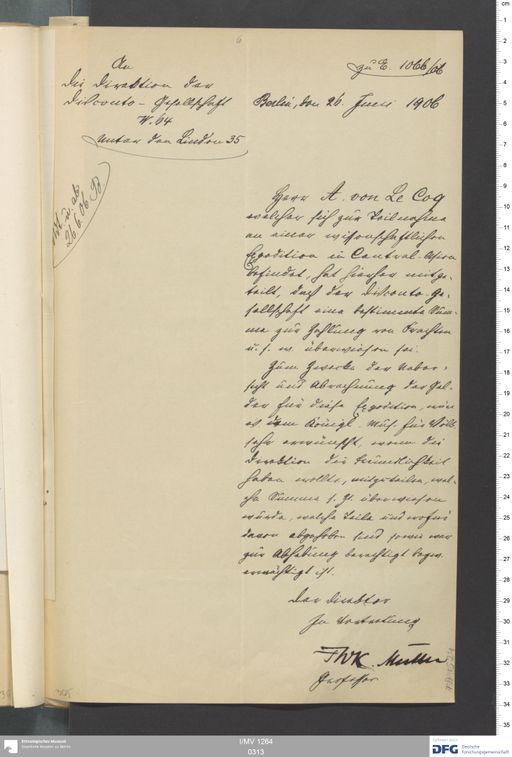 zu E. 1066/06
An
die Direktion der
Disconto-Gesellschaft
W. 64
Unter den Linden 35
Berlin, den 26. Juni 1906
26.6.06
Herr A. von Le Coq
welcher sich zur Teilnahme
an einer wissenschaftlichen
Expedition in Central-Asien
befindet, hat hierher mitge-
teilt, daß der Disconto-Ge-
sellschaft eine bestimmte Sum-
me zur Zahlung von Frachten
u. s. w. überwiesen sei.
Zum Zwecke der Ueber-
sicht und Abrechnung der Gel-
der für diese Expedition, wäre
es dem Königl. Mus. für Völk
sehr erwünscht, wenn die
Direktion die Freundlichkeit
haben wollte, mitzuteilen, wel-
che Summe s. Zt. überwiesen
wurde, welche Teile und wofür
davon abgehoben sind sowie wer
zur Abhebung berechtigt bezw.
ermächtigt ist.
Der Direktor
In Vertretung
FWK. Müller
Professor
Ethnologisches Museum
Staatliche Museen zu Berlin
I/MV 1264
0313
DFG
Deutsche
Forschungsgemeinschaft